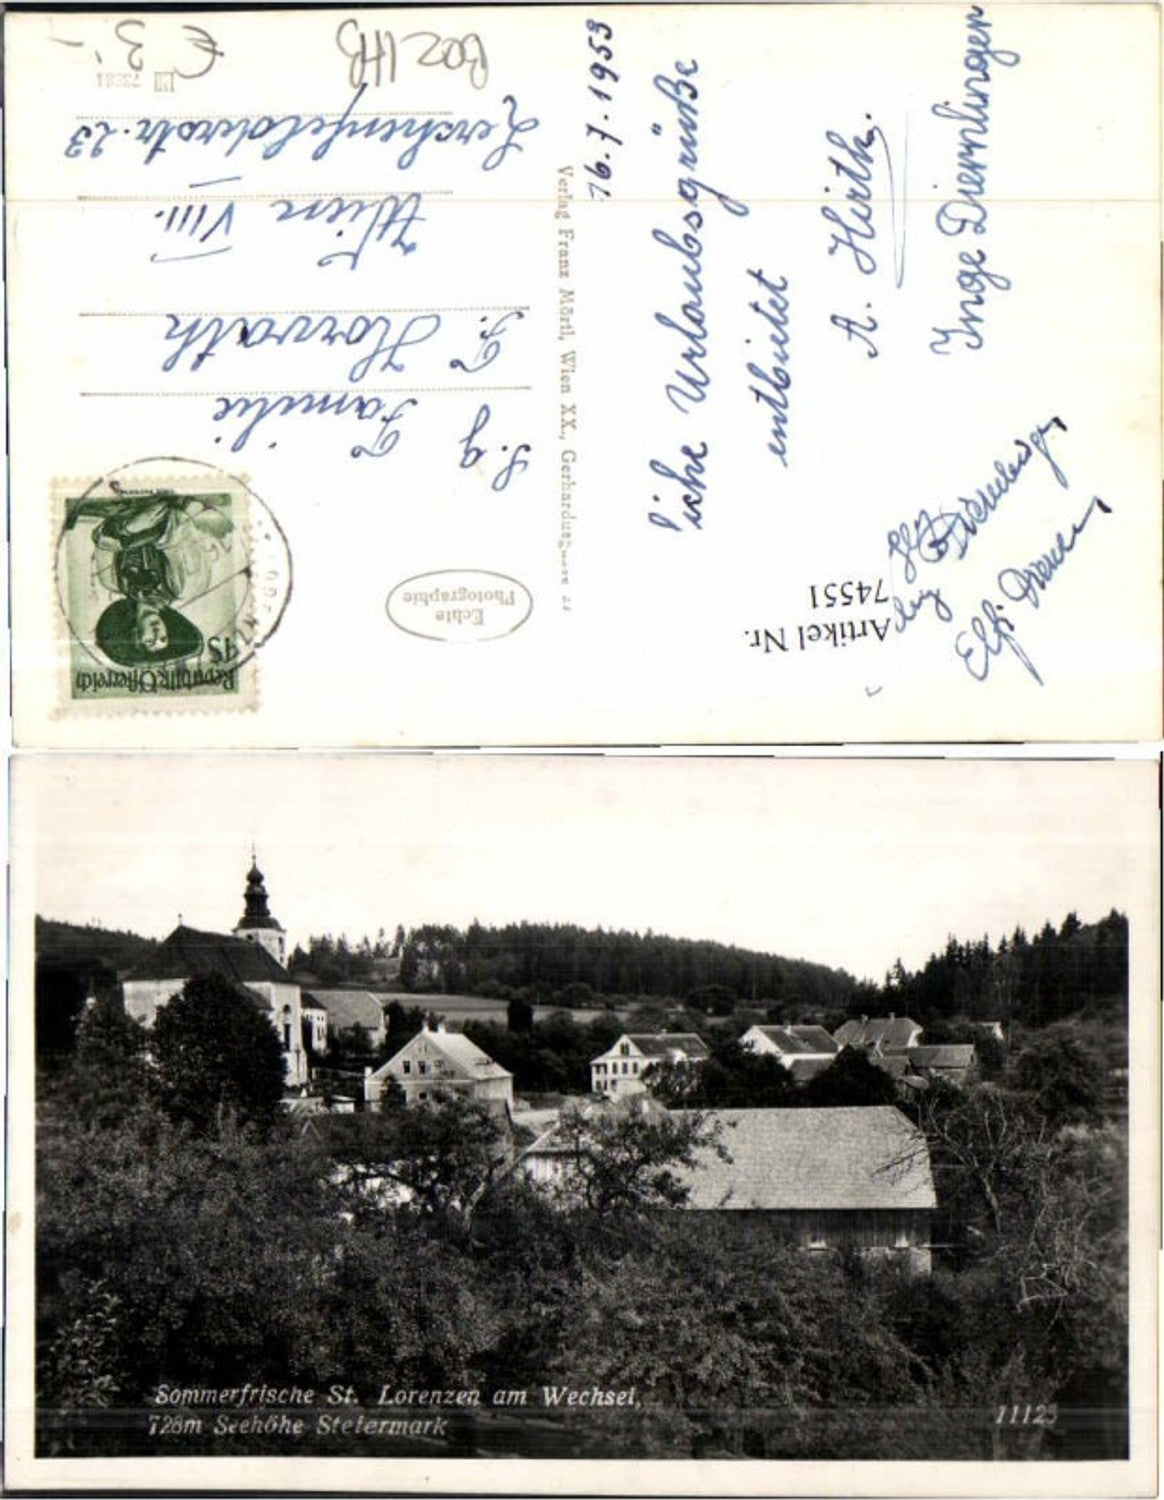 € 3.-
BOZ 1HB
16.7.1953
Urlaubsgrüße
entbietet
A. Hirth.
Inge
Elfi
Artikel Nr.
74551
Verlag Franz Mörtl, Wien XX., Gerhardusgasse
Echte
Photographie
Republik Österreich
1S
S. g
Familie
F. Horvath
Wien VIII.
Lerchenfelderstr. 23
Sommerfrische St. Lorenzen am Wechsel,
728m Seehöhe Steiermark